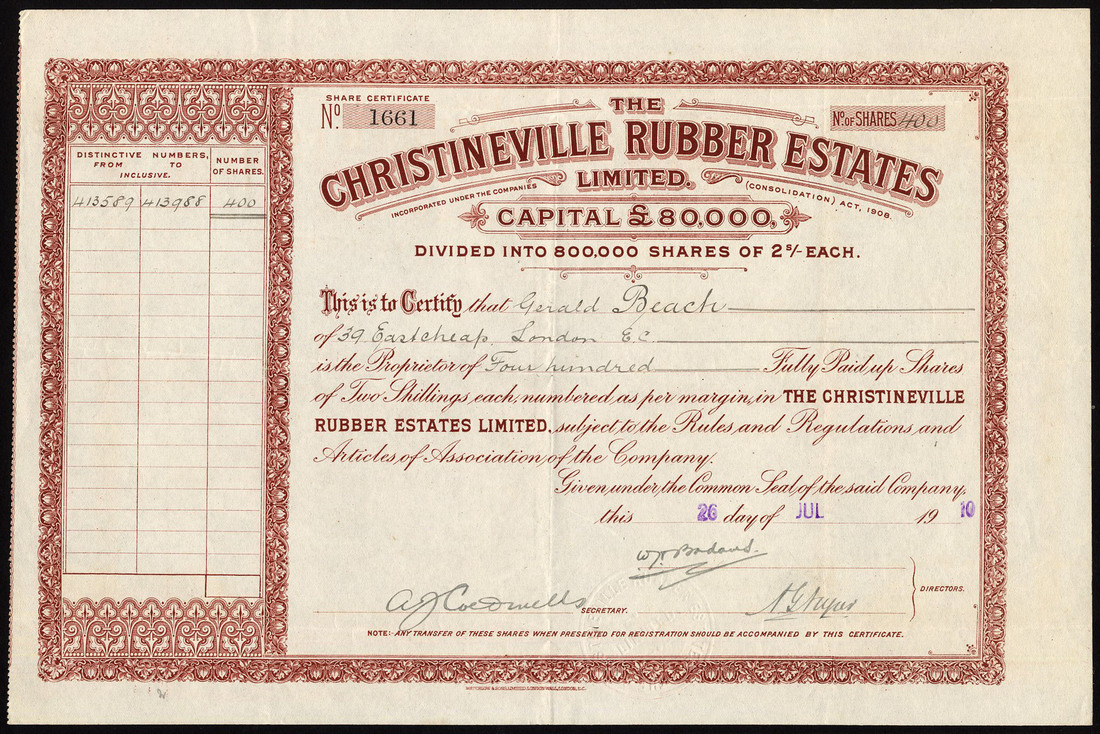 DISTINCTIVE NUMBERS,
FROM TO
INCLUSIVE.
NUMBER
OF SHARES.
413589 413988 400
SHARE CERTIFICATE
No. 1661
No. OF SHARES 400
THE
CHRISTINEVILLE RUBBER ESTATES
LIMITED.
INCORPORATED UNDER THE COMPANIES (CONSOLIDATION) ACT, 1908.
CAPITAL £80,000,
DIVIDED INTO 800,000 SHARES OF 2s/- EACH.
This is to Certify that Gerald Beach
of 39 Eastcheap. London E.C.
is the Proprietor of Four hundred Fully Paid up Shares
of Two Shillings each, numbered as per margin, in THE CHRISTINEVILLE
RUBBER ESTATES LIMITED, subject to the Rules and Regulations and
Articles of Association of the Company.
Given under the Common Seal of the said Company,
this 26 day of JUL 1910
DIRECTORS.
SECRETARY.
NOTE:- ANY TRANSFER OF THESE SHARES WHEN PRESENTED FOR REGISTRATION SHOULD BE ACCOMPANIED BY THIS CERTIFICATE.